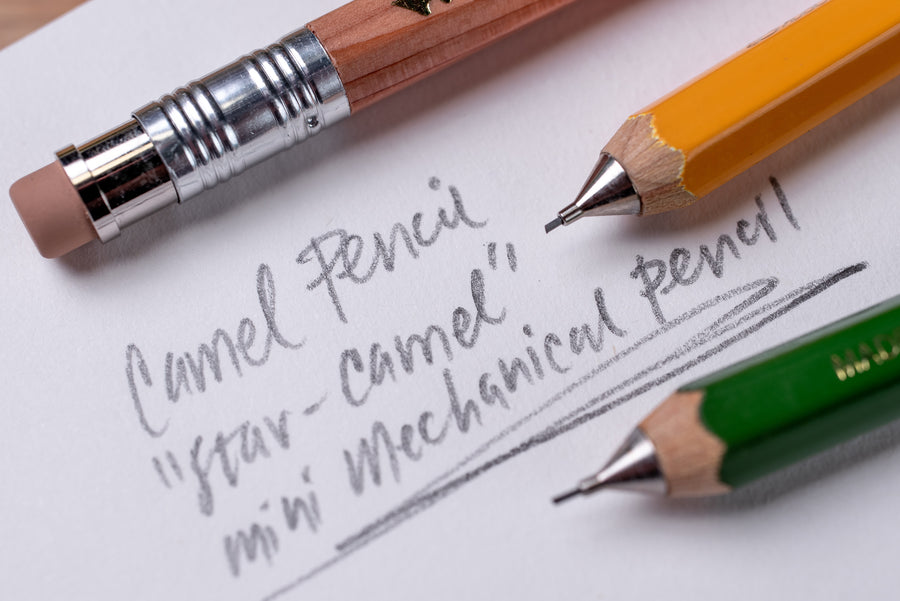 Camel Pencil
"Star-camel"
mini Mechanical Pencil
MADE